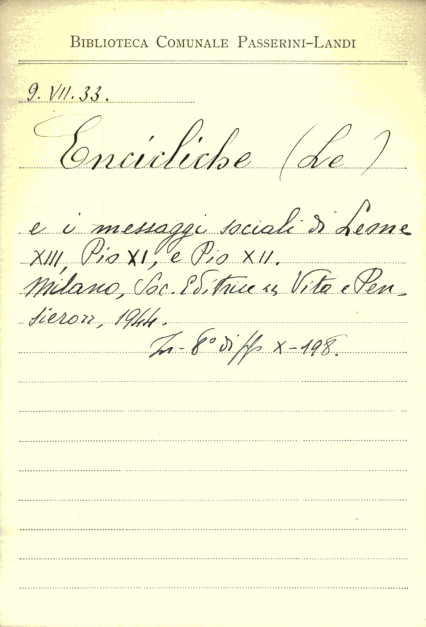 BIBLIOTECA COMUNALE PASSERINI-LANDI
9. VII. 33.
Encicliche (Le)
e i messaggi sociali di Leone
XIII, Pio XI, e Pio XII.
Milano, Soc. Editrice "Vita e Pen-
siero", 1944.
In-8° di pp X-198.